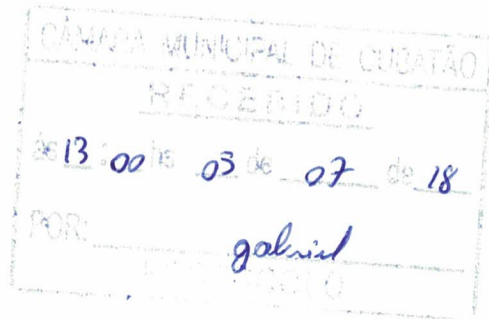 CÂMARA MUNICIPAL DE CUBATÃO
RECEBIDO
às 13:00 hs 03 de 07 de 18
POR: gabriel